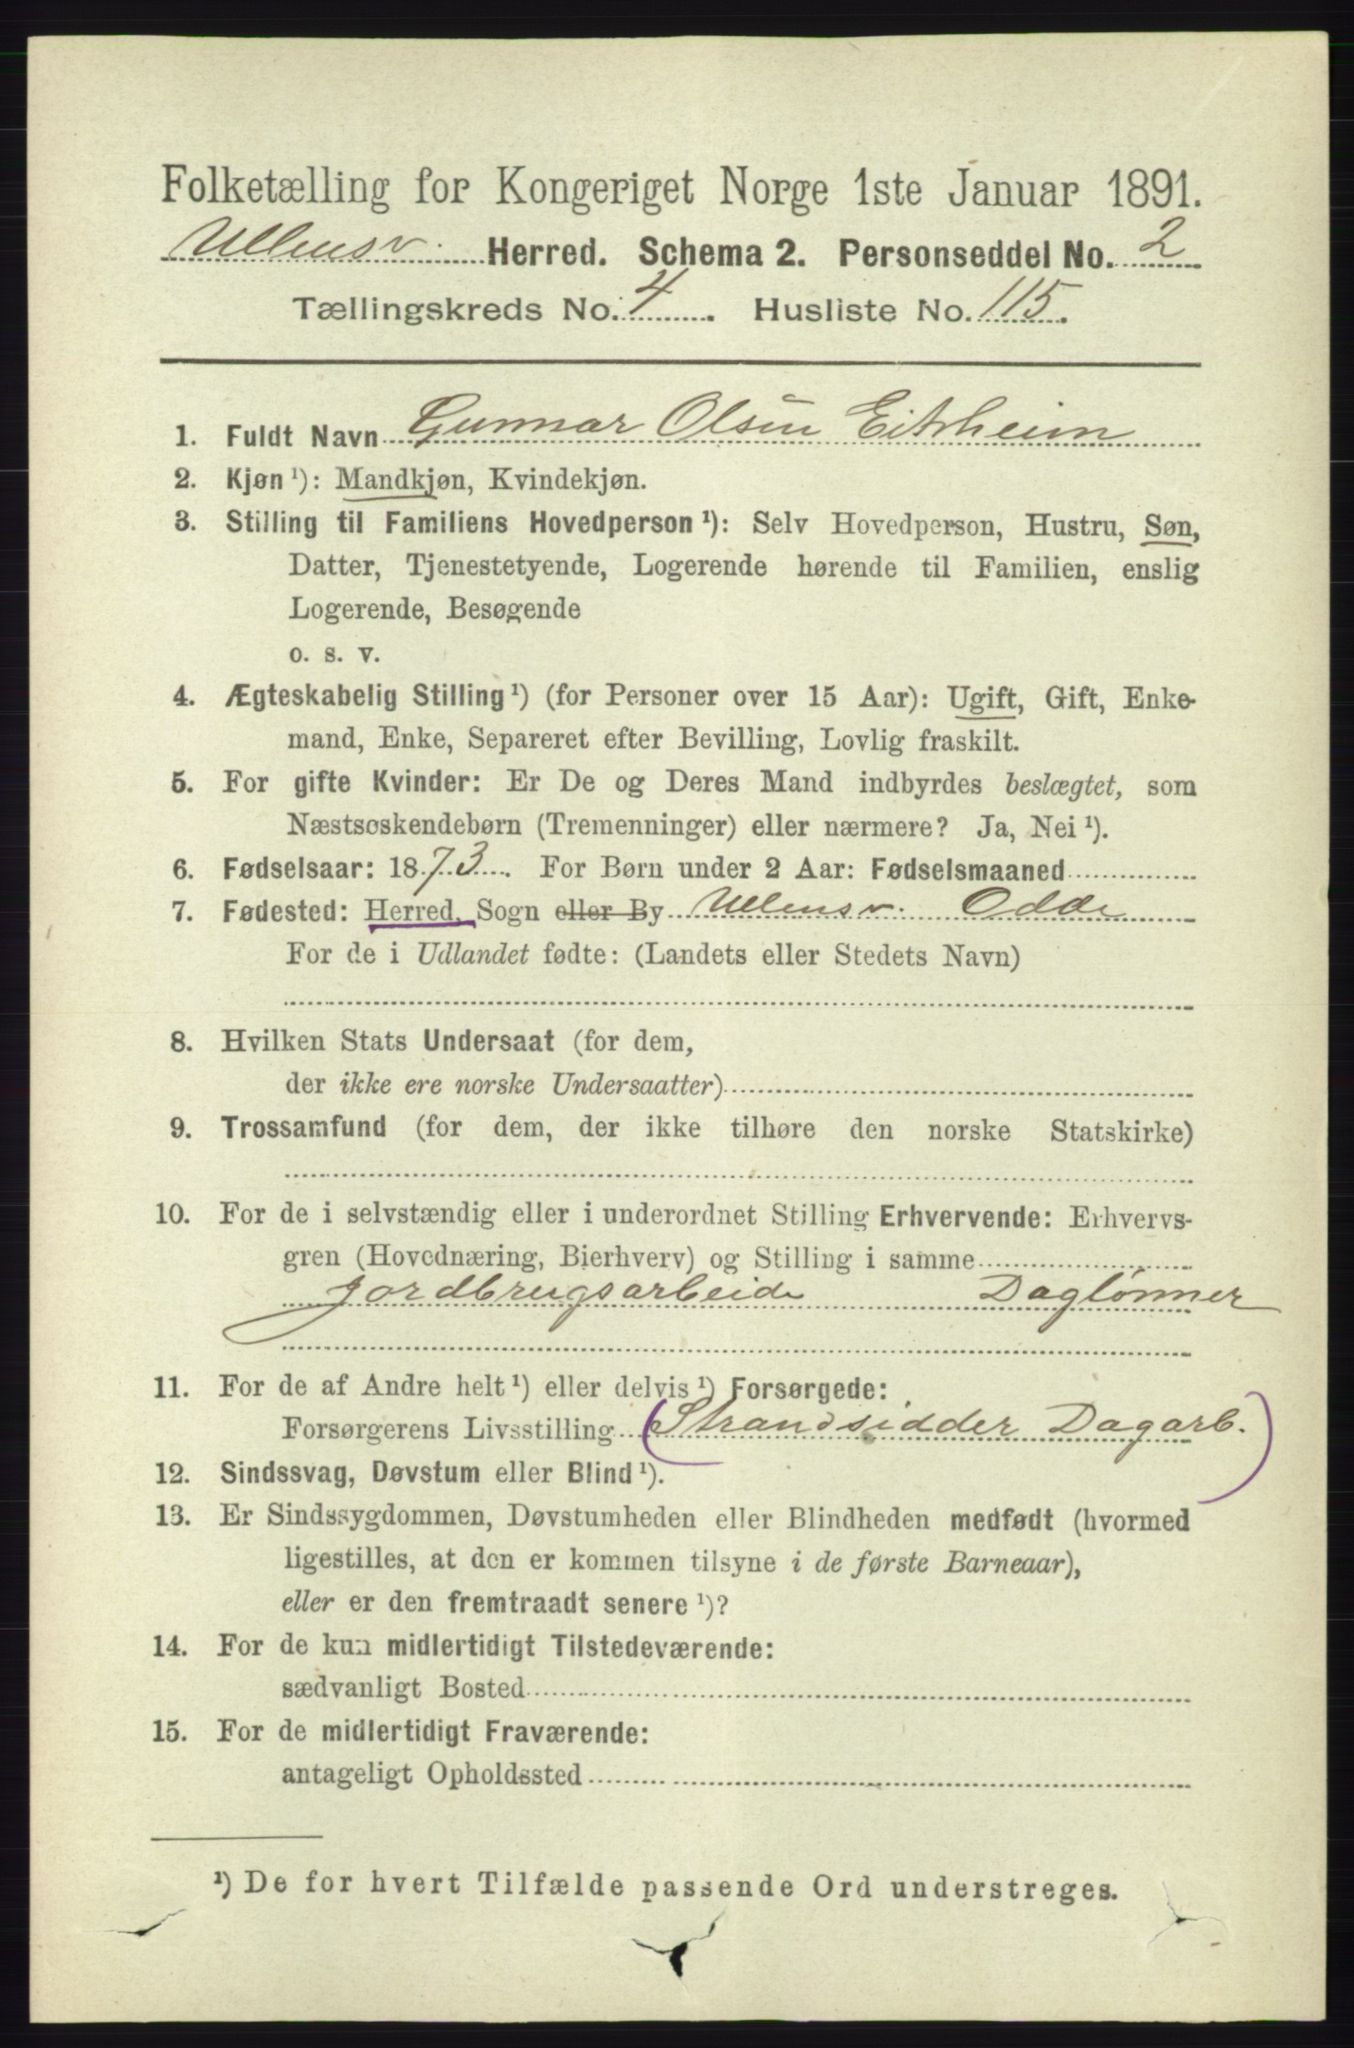 Folketælling for Kongeriget Norge 1ste Januar 1891.
Ullensv. Herred. Schema 2. Personseddel No. 2
Tællingskreds No. 4. Husliste No. 115.
1. Fuldt Navn Gunnar Olsen Eitrheim
2. Kjøn ¹): Mandkjøn, Kvindekjøn.
3. Stilling til Familiens Hovedperson ¹): Selv Hovedperson, Hustru, Søn,
Datter, Tjenestetyende, Logerende hørende til Familien, enslig
Logerende, Besøgende
o. s. v.
4. Ægteskabelig Stilling ¹) (for Personer over 15 Aar): Ugift, Gift, Enke-
mand, Enke, Separeret efter Bevilling, Lovlig fraskilt.
5. For gifte Kvinder: Er De og Deres Mand indbyrdes beslægtet, som
Næstsøskendebørn (Tremenninger) eller nærmere? Ja, Nei ¹).
6. Fødselsaar: 1873. For Børn under 2 Aar: Fødselsmaaned
7. Fødested: Herred, Sogn eller By Ullensv. Odde
For de i Udlandet fødte: (Landets eller Stedets Navn)
8. Hvilken Stats Undersaat (for dem,
der ikke ere norske Undersaatter)
9. Trossamfund (for dem, der ikke tilhøre den norske Statskirke)
10. For de i selvstændig eller i underordnet Stilling Erhvervende: Erhvervs-
gren (Hovednæring, Bierhverv) og Stilling i samme
Jordbrugsarbeide Daglønner
11. For de af Andre helt ¹) eller delvis ¹) Forsørgede:
Forsørgerens Livsstilling (Strandsidder Dagarb.)
12. Sindssvag, Døvstum eller Blind ¹).
13. Er Sindssygdommen, Døvstumheden eller Blindheden medfødt (hvormed
ligestilles, at den er kommen tilsyne i de første Barneaar),
eller er den fremtraadt senere ¹)?
14. For de kun midlertidigt Tilstedeværende:
sædvanligt Bosted
15. For de midlertidigt Fraværende:
antageligt Opholdssted
¹) De for hvert Tilfælde passende Ord understreges.